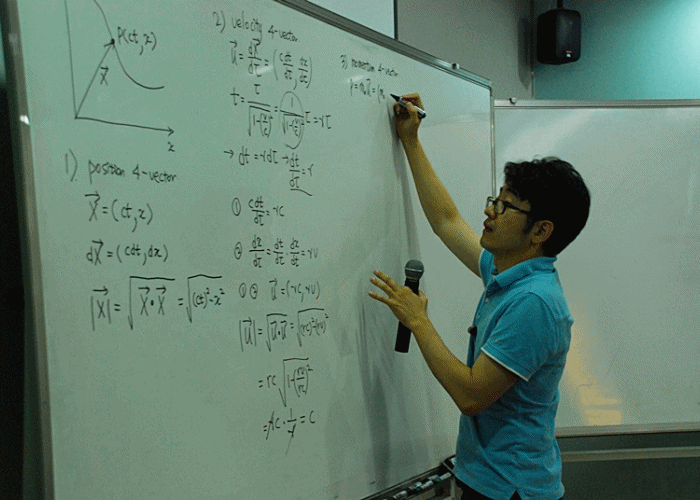 P(ct, x)
X⃗
x
1) position 4-vector
X⃗ = (ct, x)
dX⃗ = (cdt, dx)
|X⃗| = √(X⃗·X⃗) = √((ct)²-x²)
2) velocity 4-vector
u⃗ = dX⃗/dτ = (cdt/dτ, dx/dτ)
t = τ/√(1-(v/c)²) = 1/√(1-(v/c)²) τ = rτ
→ dt = rdτ → dt/dτ = r
① cdt/dτ = rc
② dx/dτ = dt/dτ · dx/dt = rv
①② u⃗ = (rc, rv)
|u⃗| = √(u⃗·u⃗) = √((rc)²-(rv)²)
= rc √(1-(rv/rc)²)
= rc · 1/r = c
3) momentum 4-vector
p⃗ = m₀u⃗ = (m₀